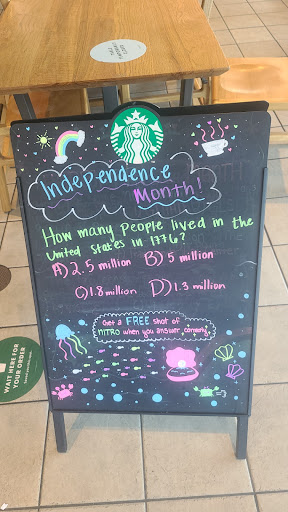 Independence
Month!
How many People lived in the
United States in 1776?
A) 2.5 million B) 5 million
C) 1.8 million D) 1.3 million
Get a FREE shot of
NITRO when you answer correctly!
WAIT HERE FOR
YOUR ORDER